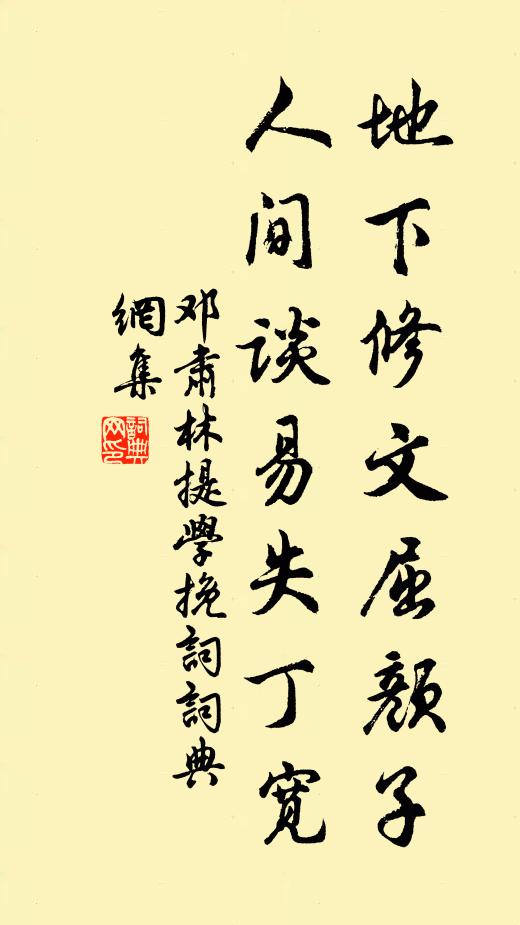 地下修文屈颜子
人间谈易失丁寛
邓肃林提學挽詞詞典
網集
詞典
网印